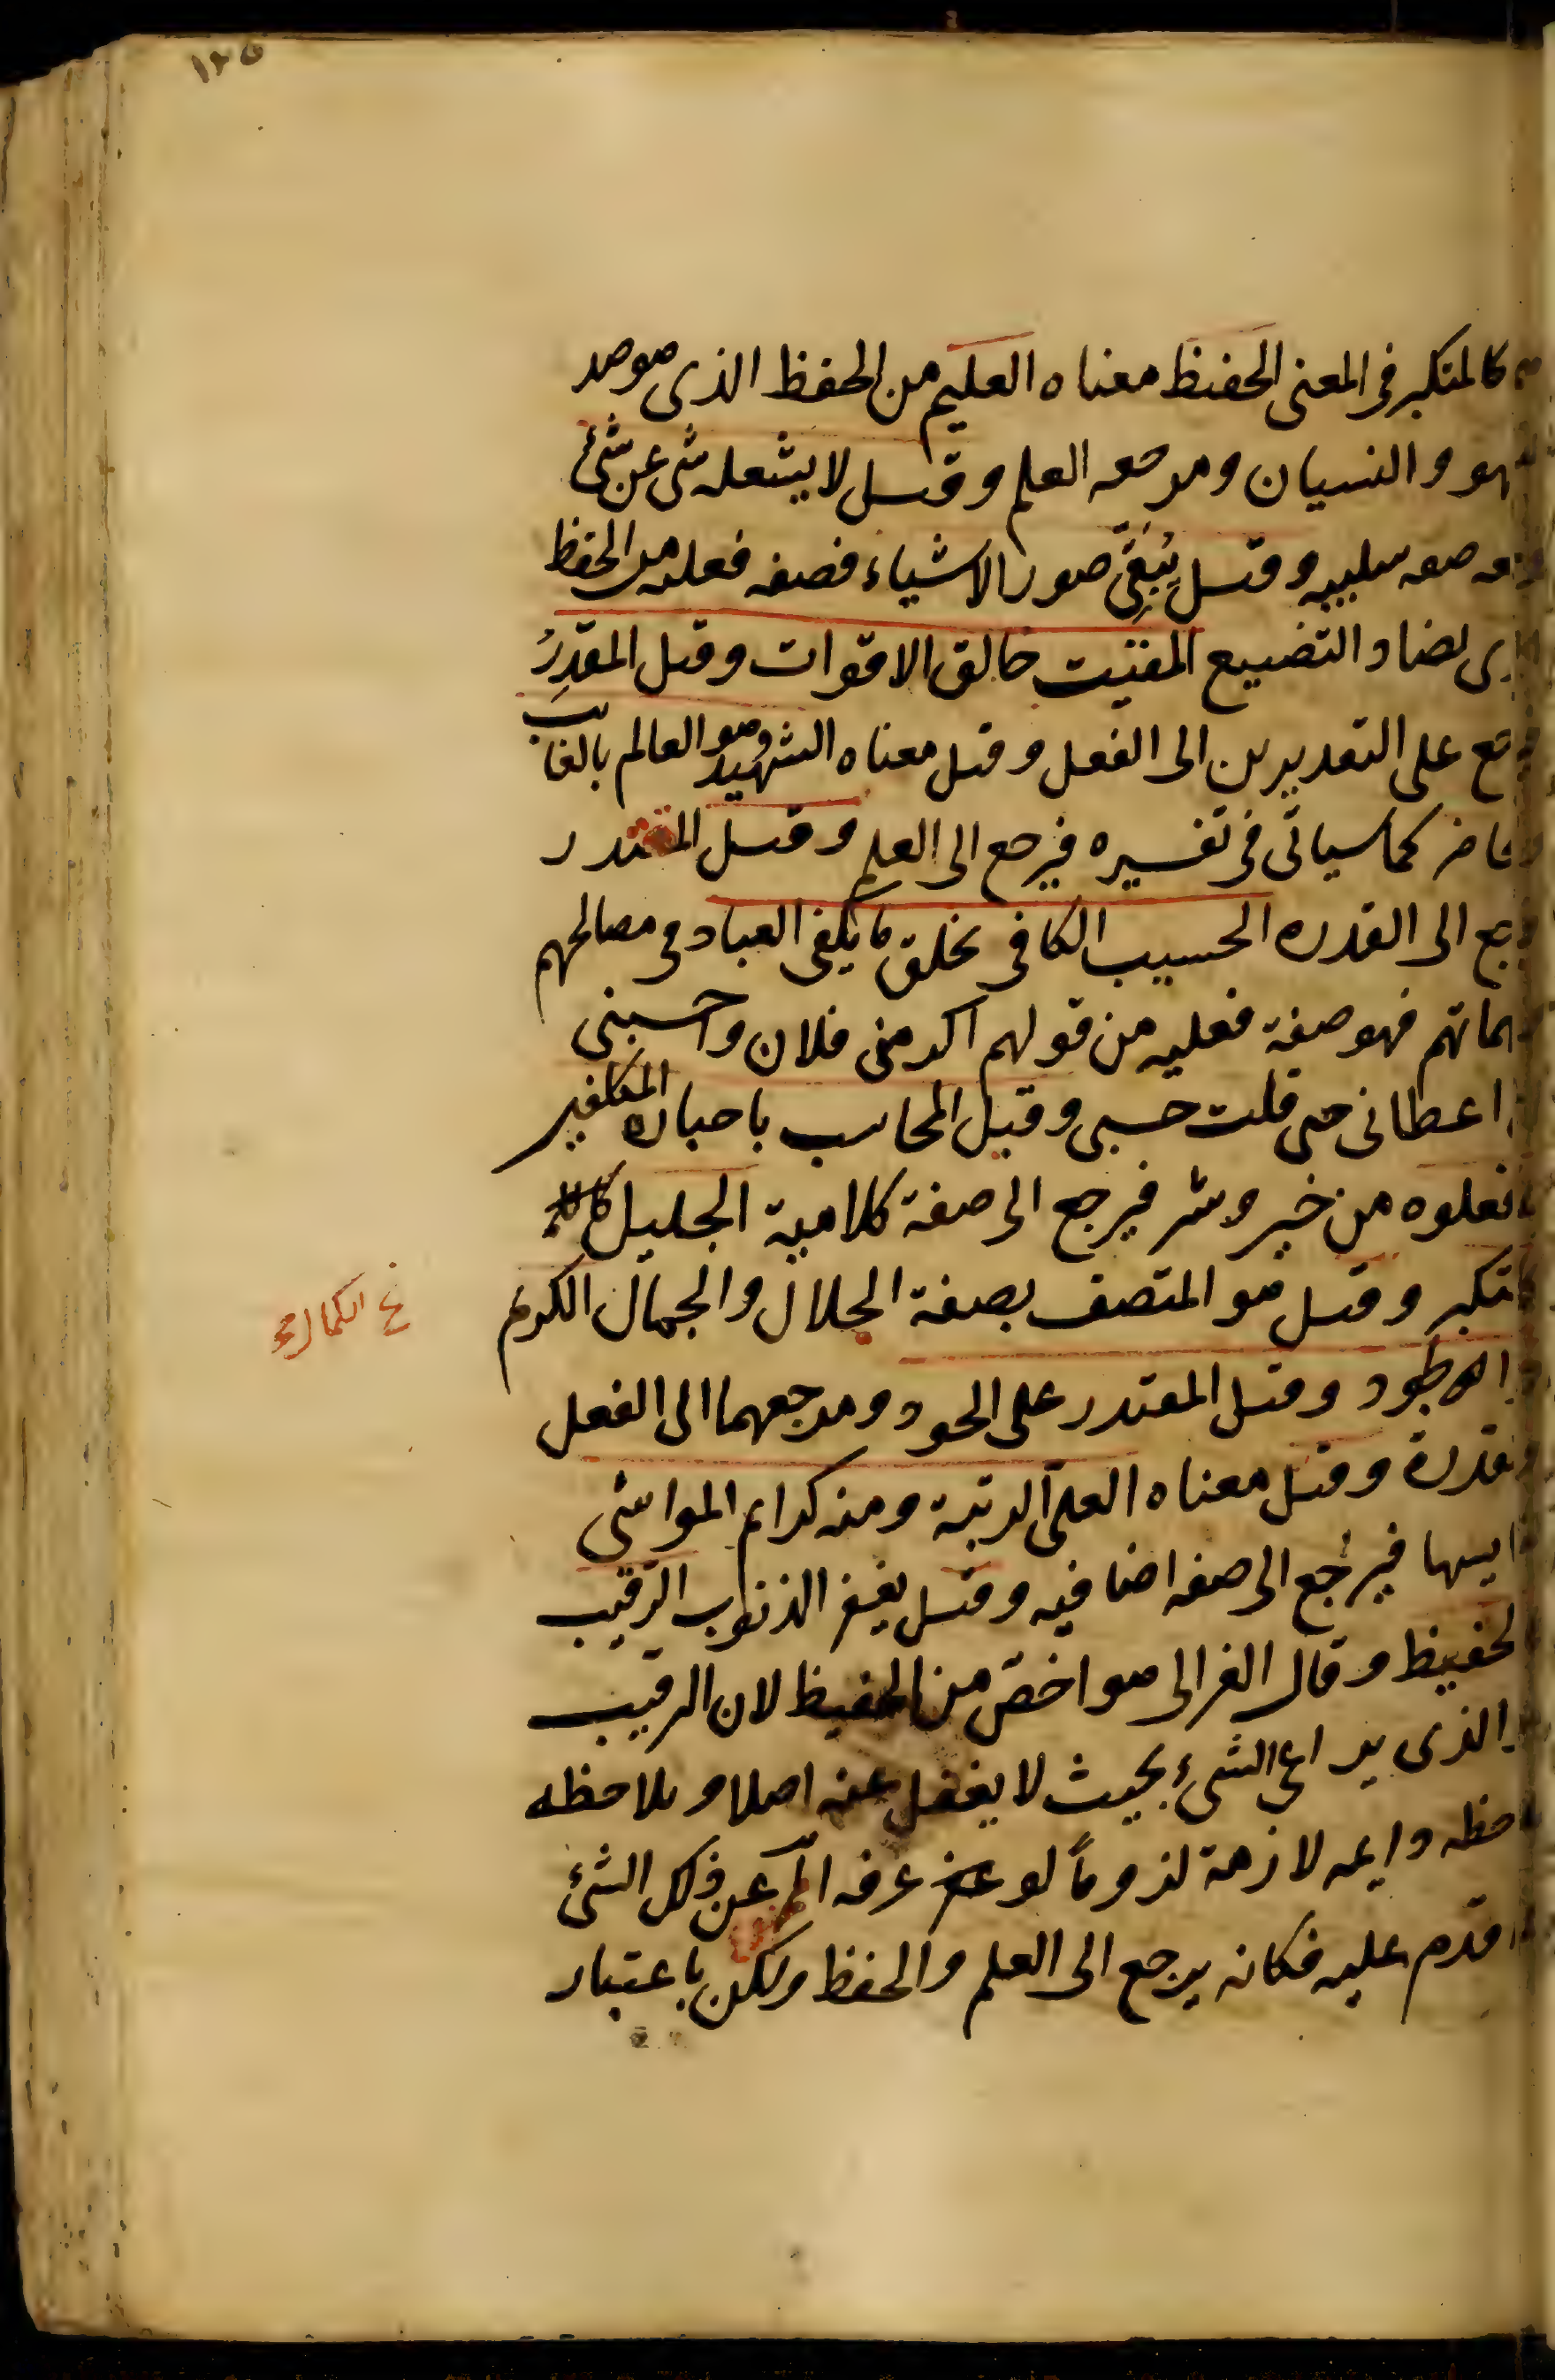 ١٢٥
كالمتكبر فى المعنى الحفيظ معناه العليم من الحفظ الذى هو ضد
السهو والنسيان ومرجعه العلم وقيل لا يشغله شى عن شئ
صفه سلبيه وقيل يُبْقِى صور الاشياء فصفه فعليه من الحفظ
الذى يضاد التضييع المقيت خالق الاقوات وقيل المقدِرُ
فيرجع على التقديرين الى الفعل وقيل معناه الشهيد وهو العالم بالغايب
والحاضر كما سياتى فى تفسيره فيرجع الى العلم وقيل المقتدر
فيرجع الى القدره الحسيب الكافى يخلق ما يكفى العباد فى مصالحهم
ومهماتهم فهو صفة فعليه من قولهم اكرمنى فلان واحسبنى
اى اعطانى حتى قلت حسبى وقيل المحاسب باخباره المكلفين
بما فعلوه من خير وشر فيرجع الى صفة كلامية الجليل
كالمتكبر وقيل هو المتصف بصفة الجلال والجمال الكريم
ع الكمالرم
ذو الجود وقيل المقتدر على الجود ومرجعهما الى الفعل
والقدرة وقيل معناه العلىّ الرتبة ومنه كرايم المواشى
لنفايسها فيرجع الى صفه اضافيه وقيل يغفر الذنوب الرقيب
كالحفيظ وقال الغزالى هو اخصّ من الحفيظ لان الرقيب
هو الذى يراعى الشىء بحيث لا يغفل عنه اصلا ويلاحظه
ملاحظه دايمه لازمة لزوماً لو عرفه الممنوع عن ذلك الشئ
لما اقدم عليه فكانه يرجع الى العلم والحفظ ولكن باعتبار